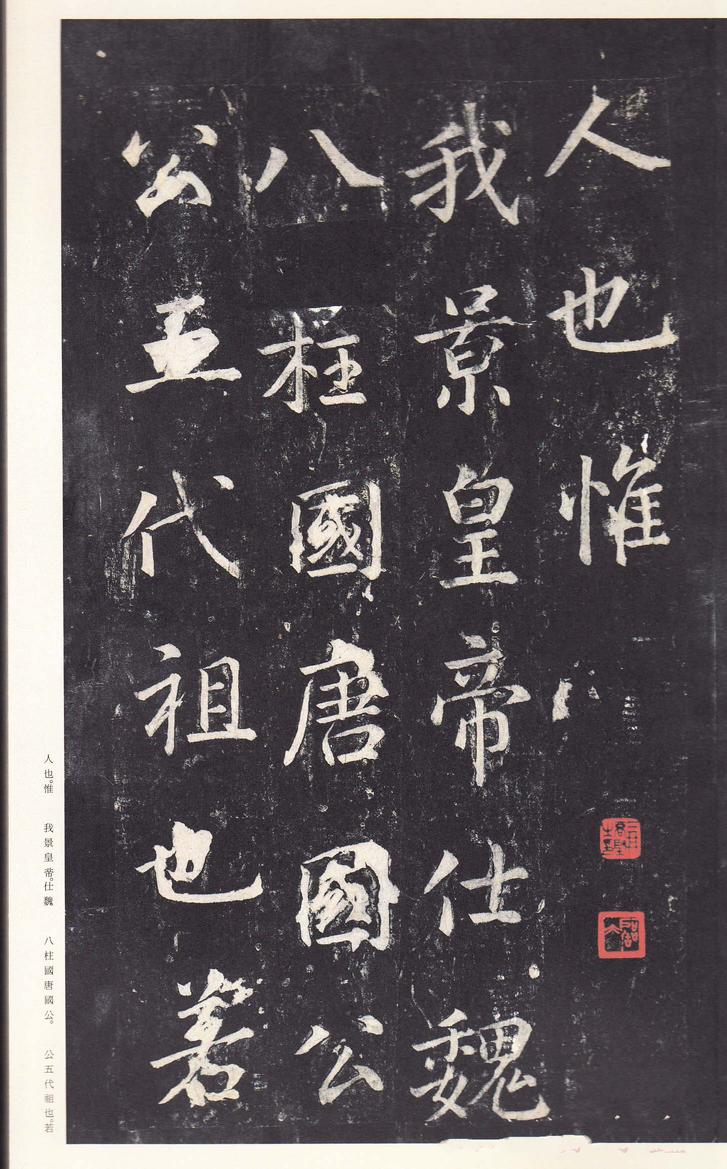 人也惟
我景皇帝仕魏
八柱國唐國公
公五代祖也若
人也。惟 我景皇帝。仕魏 八柱國唐國公。 公五代祖也。若